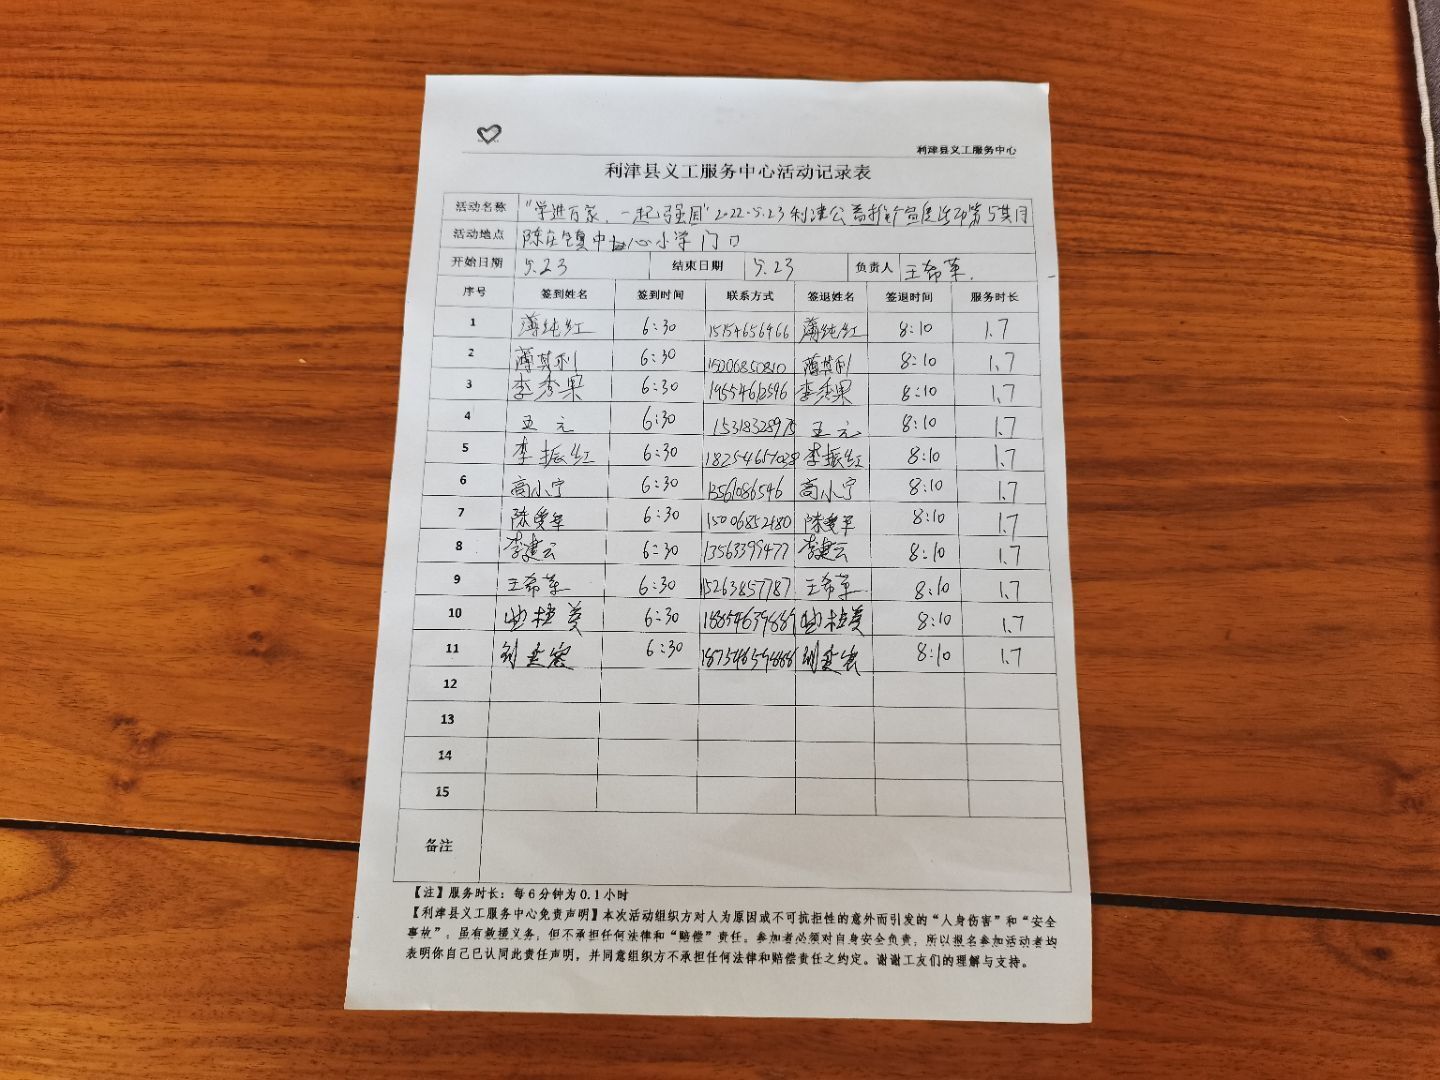 利津县义工服务中心
利津县义工服务中心活动记录表
活动名称 "学进万家、一起强国"2022.5.23利津公益推介宣传活动第5期
活动地点 陈庄镇中心小学门口
开始日期 5.23 结束日期 5.23 负责人 王希革.
序号 签到姓名 签到时间 联系方式 签退姓名 签退时间 服务时长
1 薄纯红 6:30 薄纯红 8:10 1.7
2 薄其利 6:30 15006850810 薄其利 8:10 1.7
3 李秀果 6:30 19554612596 李秀果 8:10 1.7
4 王元 6:30 王元 8:10 1.7
5 李振红 6:30 18254657028 李振红 8:10 1.7
6 高小宁 6:30 高小宁 8:10 1.7
7 陈爱军 6:30 15006852480 陈爱军 8:10 1.7
8 李建云 6:30 13563399477 李建云 8:10 1.7
9 王希革 6:30 15263857787 王希革 8:10 1.7
10 6:30 8:10 1.7
11 6:30 8:10 1.7
12
13
14
15
备注
【注】服务时长：每6分钟为0.1小时
【利津县义工服务中心免责声明】本次活动组织方对人为原因或不可抗拒性的意外而引发的“人身伤害”和“安全
事故”，虽有救援义务，但不承担任何法律和“赔偿”责任。参加者必须对自身安全负责，所以报名参加活动者均
表明你自己已认同此责任声明，并同意组织方不承担任何法律和赔偿责任之约定。谢谢工友们的理解与支持。